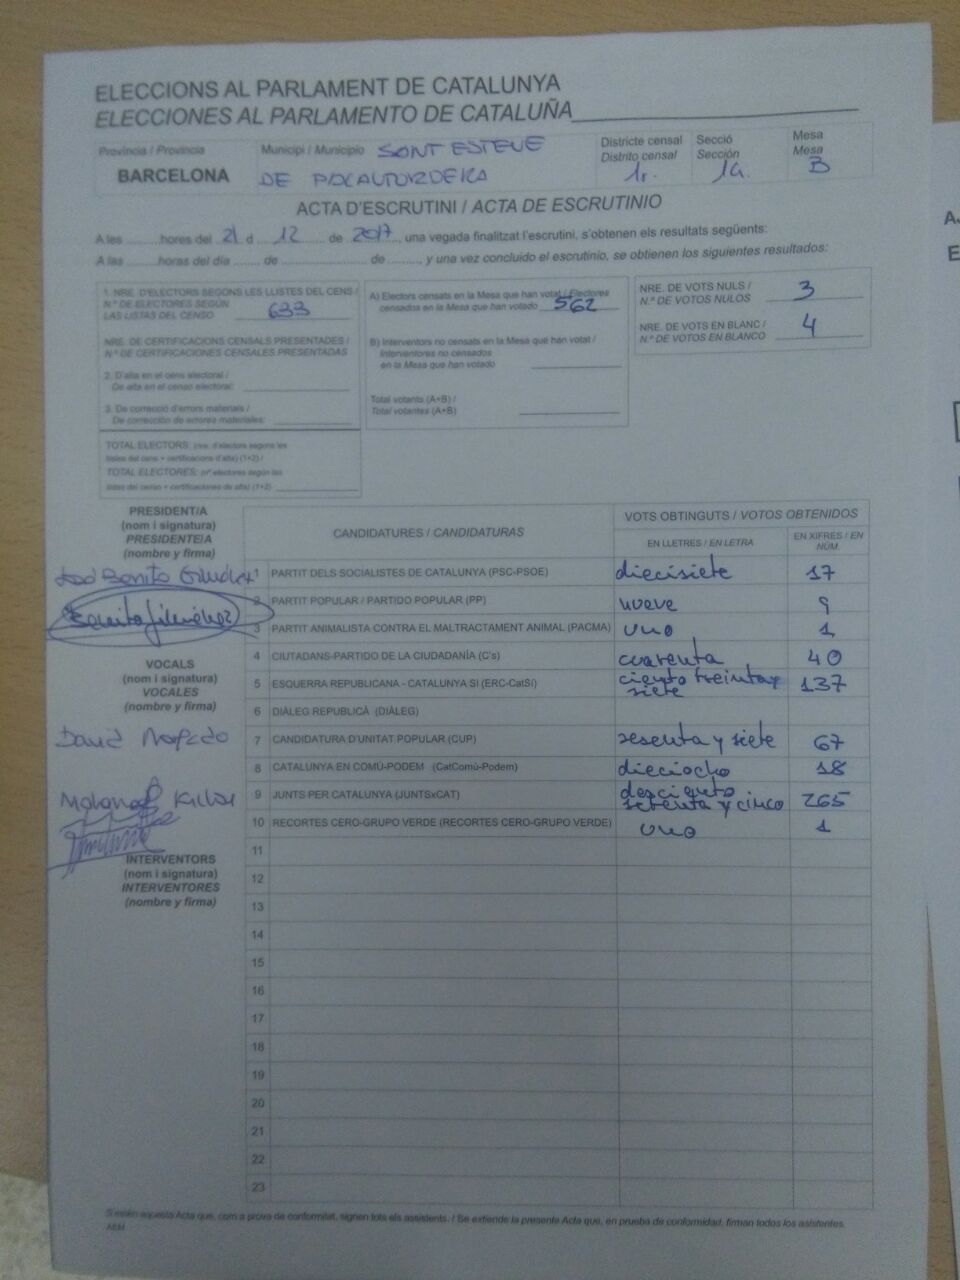 ELECCIONS AL PARLAMENT DE CATALUNYA
ELECCIONES AL PARLAMENTO DE CATALUÑA
Província / Provincia
BARCELONA
Municipi / Municipio SANT ESTEVE
DE PALAUTORDERA
Districte censal
Distrito censal
1r.
Secció
Sección
1a.
Mesa
Mesa
B
ACTA D'ESCRUTINI / ACTA DE ESCRUTINIO
A les ........ hores del 21 d 12 de 2017, una vegada finalitzat l'escrutini, s'obtenen els resultats següents:
A las ........ horas del día ........ de ........ de ........, y una vez concluido el escrutinio, se obtienen los siguientes resultados:
1. NRE. D'ELECTORS SEGONS LES LLISTES DEL CENS /
N.º DE ELECTORES SEGÚN
LAS LISTAS DEL CENSO 633
NRE. DE CERTIFICACIONS CENSALS PRESENTADES /
N.º DE CERTIFICACIONES CENSALES PRESENTADAS
2. D'alta en el cens electoral /
De alta en el censo electoral:
3. De correcció d'errors materials /
De corrección de errores materiales:
TOTAL ELECTORS: (nre. d'electors segons les
llistes del cens + certificacions d'alta) (1+2) /
TOTAL ELECTORES: (nº electores según las
listas del censo + certificaciones de alta) (1+2)
A) Electors censats en la Mesa que han votat / Electores
censados en la Mesa que han votado 562
B) Interventors no censats en la Mesa que han votat /
Interventores no censados
en la Mesa que han votado
Total votants (A+B) /
Total votantes (A+B)
NRE. DE VOTS NULS /
N.º DE VOTOS NULOS 3
NRE. DE VOTS EN BLANC /
N.º DE VOTOS EN BLANCO 4
PRESIDENT/A
(nom i signatura)
PRESIDENTE/A
(nombre y firma)
VOCALS
(nom i signatura)
VOCALES
(nombre y firma)
David
INTERVENTORS
(nom i signatura)
INTERVENTORES
(nombre y firma)
CANDIDATURES / CANDIDATURAS
VOTS OBTINGUTS / VOTOS OBTENIDOS
EN LLETRES / EN LETRA
EN XIFRES / EN NÚM.
1 PARTIT DELS SOCIALISTES DE CATALUNYA (PSC-PSOE) diecisiete 17
2 PARTIT POPULAR / PARTIDO POPULAR (PP) nueve 9
3 PARTIT ANIMALISTA CONTRA EL MALTRACTAMENT ANIMAL (PACMA) uno 1
4 CIUTADANS-PARTIDO DE LA CIUDADANÍA (C's) cuarenta 40
5 ESQUERRA REPUBLICANA - CATALUNYA SÍ (ERC-CatSí) ciento treinta y siete 137
6 DIÀLEG REPUBLICÀ (DIÀLEG)
7 CANDIDATURA D'UNITAT POPULAR (CUP) sesenta y siete 67
8 CATALUNYA EN COMÚ-PODEM (CatComú-Podem) dieciocho 18
9 JUNTS PER CATALUNYA (JUNTSxCAT) y cinco 265
10 RECORTES CERO-GRUPO VERDE (RECORTES CERO-GRUPO VERDE) uno 1
11
12
13
14
15
16
17
18
19
20
21
22
23
S'estén aquesta Acta que, com a prova de conformitat, signen tots els assistents. / Se extiende la presente Acta que, en prueba de conformidad, firman todos los asistentes.